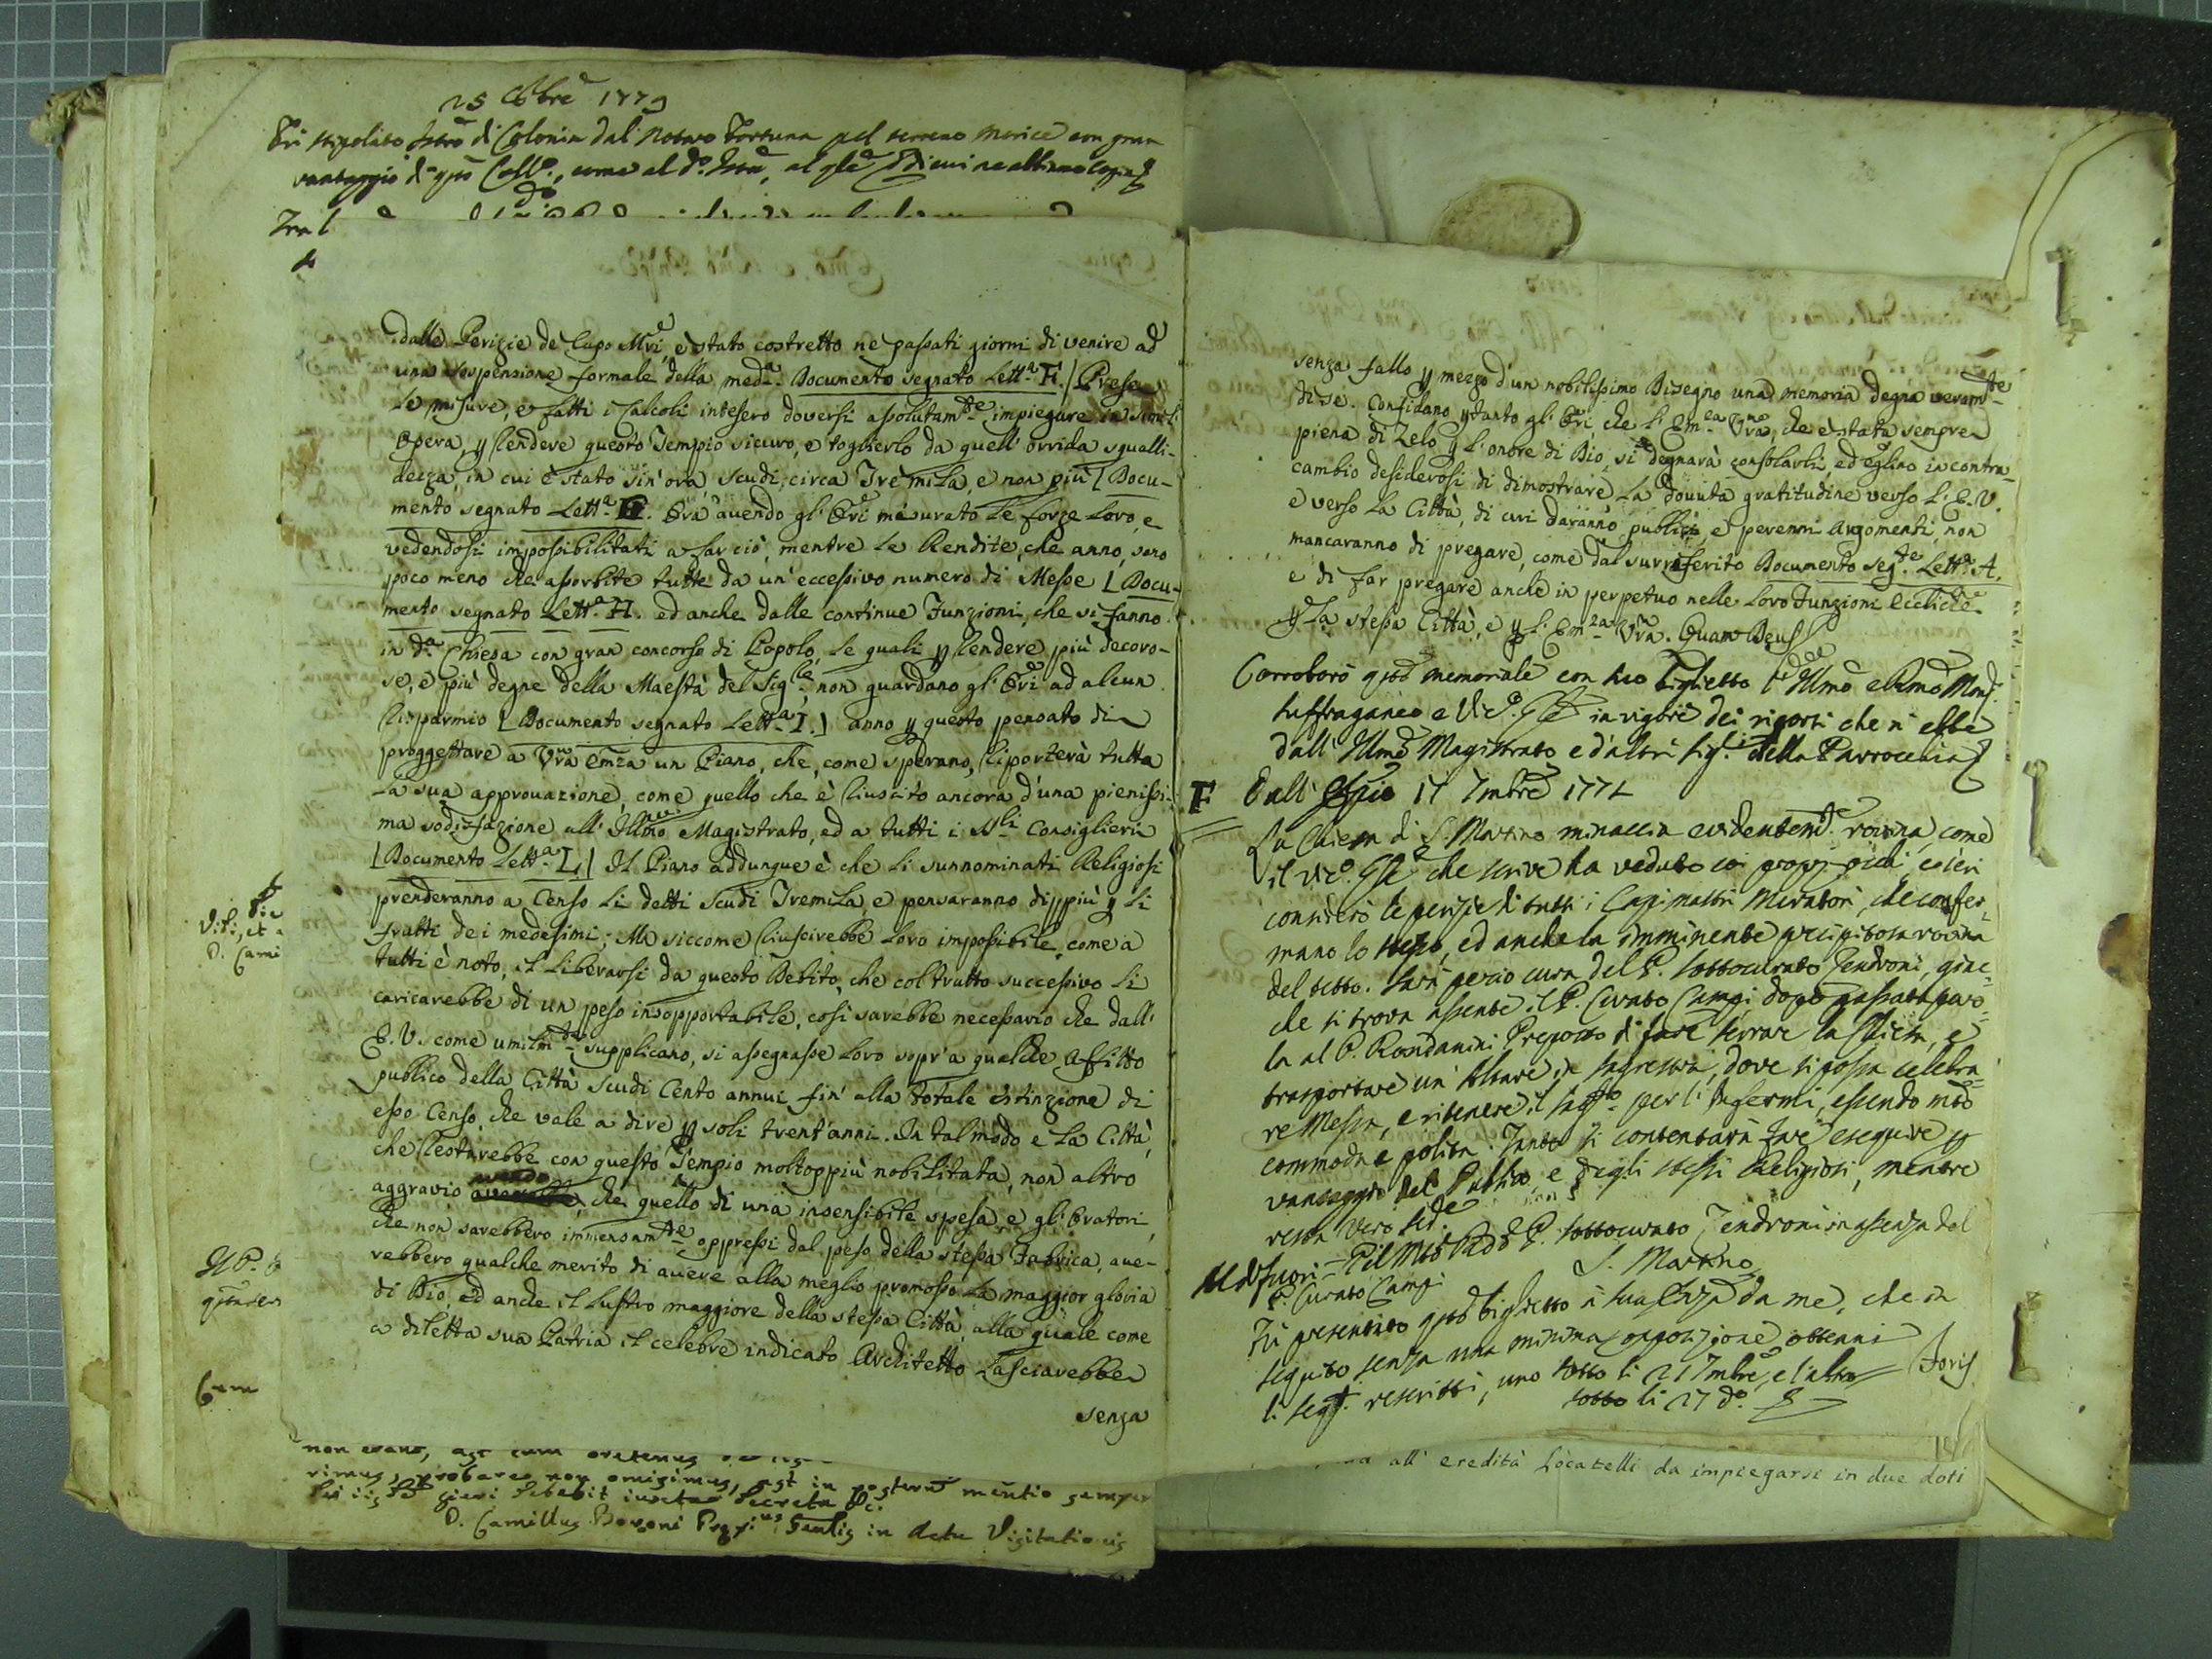 25 Obre 1779
Fù stipolato Istro di Colonia dal Notaro Fortuna pel terreno Morice con gran
vantaggio di qto Collo, come al do. Istro, al qle di cui ne abbiamo copia
dalle Perizie de Capo Mri, è stato costretto ne passati giorni di venire ad
una sospensione formale della meda. Documento segnato Letta. F./ Prese
le misure, e fatti i Calcoli intesero doversi assolutamte impiegare in simil
Opera, p rendere questo Tempio sicuro, e toglierlo da quell' orrida squalli-
dezza, in cui è stato sin' ora, scudi, circa Tremila, e non più [Docu-
mento segnato Letta. G. Ora avendo gl' Ori misurato le forze loro, e
vedendosi impossibilitati a far ciò, mentre le Rendite, che anno, sono
poco meno che assorbite tutte da un' eccessivo numero di Messe [Docu-
mento segnato Letta. H. ed anche dalle continue Funzioni, che si fanno
in da. Chiesa con gran concorso di Popolo, le quali p rendere più decoro-
se, e più degne della Maestà del Sigre. non guardano gl' Ori ad alcun
risparmio [Documento segnato Letta. I.] anno p questo pensato di
proggettare a Vra Emza un Piano, che, come sperano, riporterà tutta
la sua approvazione, come quello che è riuscito ancora d'una pienissi-
ma sodisfazione all' Illmo Magistrato, ed a tutti i Sri Consiglieri
[Documento Letta. L.] Il Piano addunque è che li sunnominati Religiosi
prenderanno a Censo li detti Scudi Tremila, e pensaranno dippiù p li
frutti dei medesimi; Ma siccome riuscirebbe loro impossibile, come a
tutti è noto, il liberarsi da questo Debito, che col tratto successivo li
caricarebbe di un peso insopportabile, così sarebbe necessario che dall'
E. V. come umilmte supplicano, si assegnasse loro sopr' a qualche Affitto
publico della Città Scudi Cento annui fin' alla totale estinzione di
esso Censo, che vale a dire p soli trent' anni. In tal modo e la Città,
che restarebbe con questo Tempio moltoppiù nobilitata, non altro
aggravio avendo, che quello di una insensibile spesa, e gl' Oratori,
che non sarebbero immensamte oppressi dal peso della stessa Fabrica, ave-
rebbero qualche merito di avere alla meglio promossa la maggior gloria
di Dio, ed anche il lustro maggiore della stessa Città, alla quale come
a diletta sua Patria il celebre indicato Architetto lasciarebbe
senza
non erant,
rimus, probare non omisimus, ast in posterum mentio semper
fieri debebit iuxta Decreta &c.
D. Camillus Bovoni Praeptus Gnlis in Actu Visitationis
senza fallo p mezzo d'un nobilissimo Disegno una memoria degna veramte
di se. Confidano ptanto gl' Ori, che l' Emza Vra, che è stata sempre
piena di zelo p l' onore di Dio, si degnarà consolarli, ed eglino incontra-
cambio desiderosi di dimostrare la dovuta gratitudine verso l' E. V.
e verso la Città, di cui daranno publici, e perenni argomenti, non
mancaranno di pregare, come dal surriferito Documento segte. Letta. A.
e di far pregare anche in perpetuo nelle loro Funzioni Ecclìche
p la stessa Città, e p l' Emza Vra. Quam Deus
Corroborò qto memoriale con suo biglietto l' Illmo e Rmo Monsr.
Suffraganeo e Vico. Gle in vigore dei ricorsi che n' ebbe
dall' Illmo Magistrato e d'altri sigri. della Parrocchia
F Dall' Offizio 17 7mbre 1772
La Chiesa di S. Martino minaccia evidentemte. rovina, come
il Vico. Gle che scrive ha veduto coi proprj occhi, e ieri
considerò le perizie di tutti i Capimastri Muratori, che confer-
mano lo stesso, ed anche la imminente precipitosa rovina
del tetto. Sarà perciò cura del P. Sottocurato Tendroni, giac-
che si trova assente il P. Curato Campi, dopo passata paro-
la al P. Rondanini Preposto di fare serrare la Chiesa, e
trasportare un' Altare in Sagrestia, dove si possa celebra-
re Messa, e ritenere il Sagto per l' Infermi, essendo mto
commoda e polita. Tanto si contentarà fare eseguire p
vantaggio del Publico, e degli stessi Religiosi, mentre
resta vero sere.
Al di fuori = Pel Mto Rdo P. Sottocurato Tendroni in assenza del
P. Curato Campi
S. Martino
Fù presentato qto biglietto a sua Emza da me, che in
seguito senza una minima opposizione ottenni
li segti. rescritti, uno sotto li 21 7mbre, e l'altro
sotto li 27 do.
Foris
all' eredità Locatelli da impiegarsi in due doti